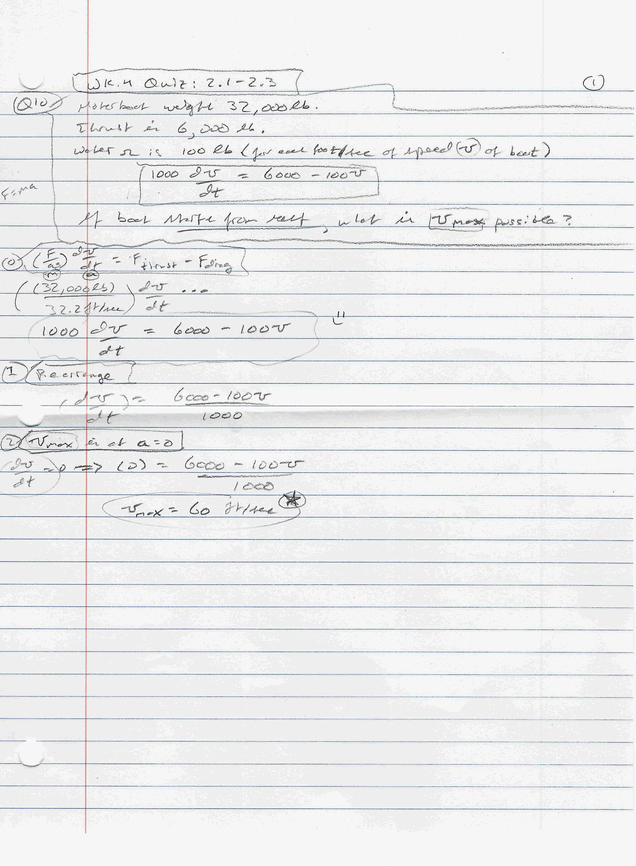 WK.4 Quiz: 2.1-2.3
①
Q10 Motorboat weight 32,000 lb.
Thrust is 6,000 lb.
Water Ω is 100 lb (for each foot/sec of speed (v) of boat)
1000 dv/dt = 6000 - 100v
F=ma
If boat starts from rest, what is vmax possible?
⓪ (F/ag) dv/dt = Fthrust - Fdrag
m a
((32,000 lb)/32.2ft/sec) dv/dt ...
1000 dv/dt = 6000 - 100v
① Rearrange
(dv/dt) = (6000 - 100v)/1000
② vmax is at a=0
dv/dt = 0 => (0) = (6000 - 100v)/1000
vmax = 60 ft/sec ★